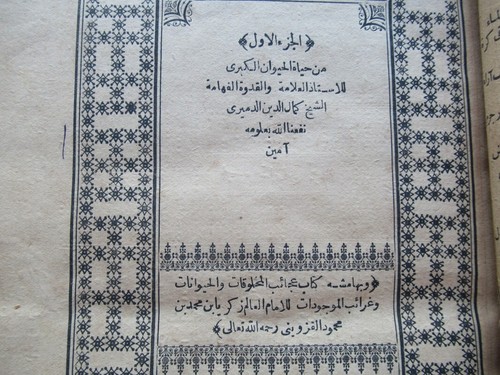 ﴿الجزء الاول﴾
من حياة الحيوان الكبرى
للاستاذ العلامة والقدوة الفهامة
الشيخ كمال الدين الدميرى
نفعنا الله بعلومه
آمين
﴿وبهامشه كتاب عجائب المخلوقات والحيوانات
وغرائب الموجودات للامام العالم زكريا بن محمد بن
محمود القزوينى رحمه الله تعالى﴾